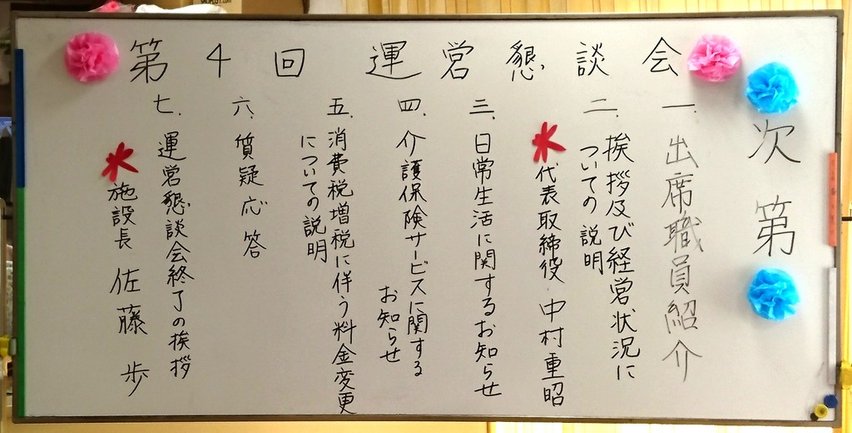 第4回 運営懇談会
次第
一. 出席職員紹介
二. 挨拶及び経営状況に
ついての説明
代表取締役 中村重昭
三. 日常生活に関するお知らせ
四. 介護保険サービスに関する
お知らせ
五. 消費税増税に伴う料金変更
についての説明
六. 質疑応答
七. 運営懇談会終了の挨拶
施設長 佐藤 歩